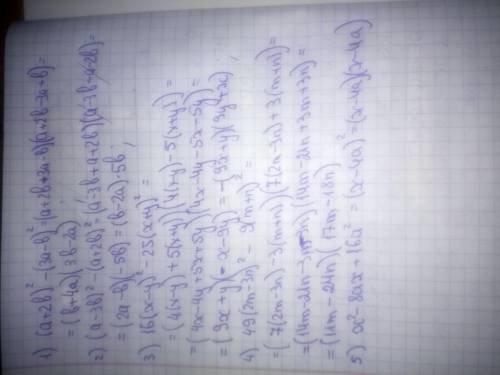 1) (a+2b)² - (3a-b)² = (a+2b+3a-b)(a+2b-3a+b) =
= (b+4a)(3b-2a)
2) (a-3b)² - (a+2b)² = (a-3b+a+2b)(a-3b-a-2b) =
= (2a-b)(-5b) = (b-2a)·5b;
3) 16(x-y)² - 25(x+y)² =
= (4(x-y)+5(x+y))(4(x-y)-5(x+y)) =
= (4x-4y+5x+5y)(4x-4y-5x-5y) =
= (9x+y)(-x-9y) = -(9x+y)(9y+x);
4) 49(2m-3n)² - 9(m+n)² =
= (7(2m-3n)-3(m+n))(7(2m-3n)+3(m+n)) =
= (14m-21n-3m-3n)(14m-21n+3m+3n) =
= (11m-24n)(17m-18n)
5) x²-8ax+16a² = (x-4a)² = (x-4a)(x-4a)